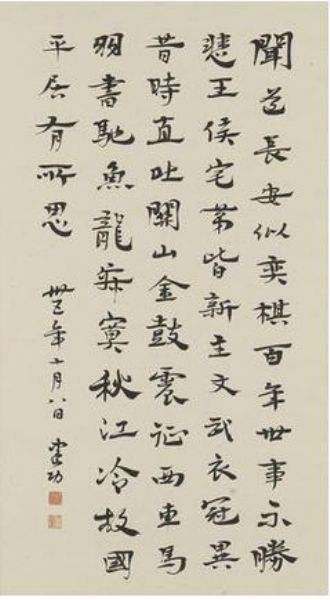 聞道長安似奕棋百年世事不勝
悲王侯宅第皆新主文武衣冠異
昔時直北關山金鼓震征西車馬
羽書馳魚龍寂寞秋江冷故國
平居有所思 卅年十月八日 建功